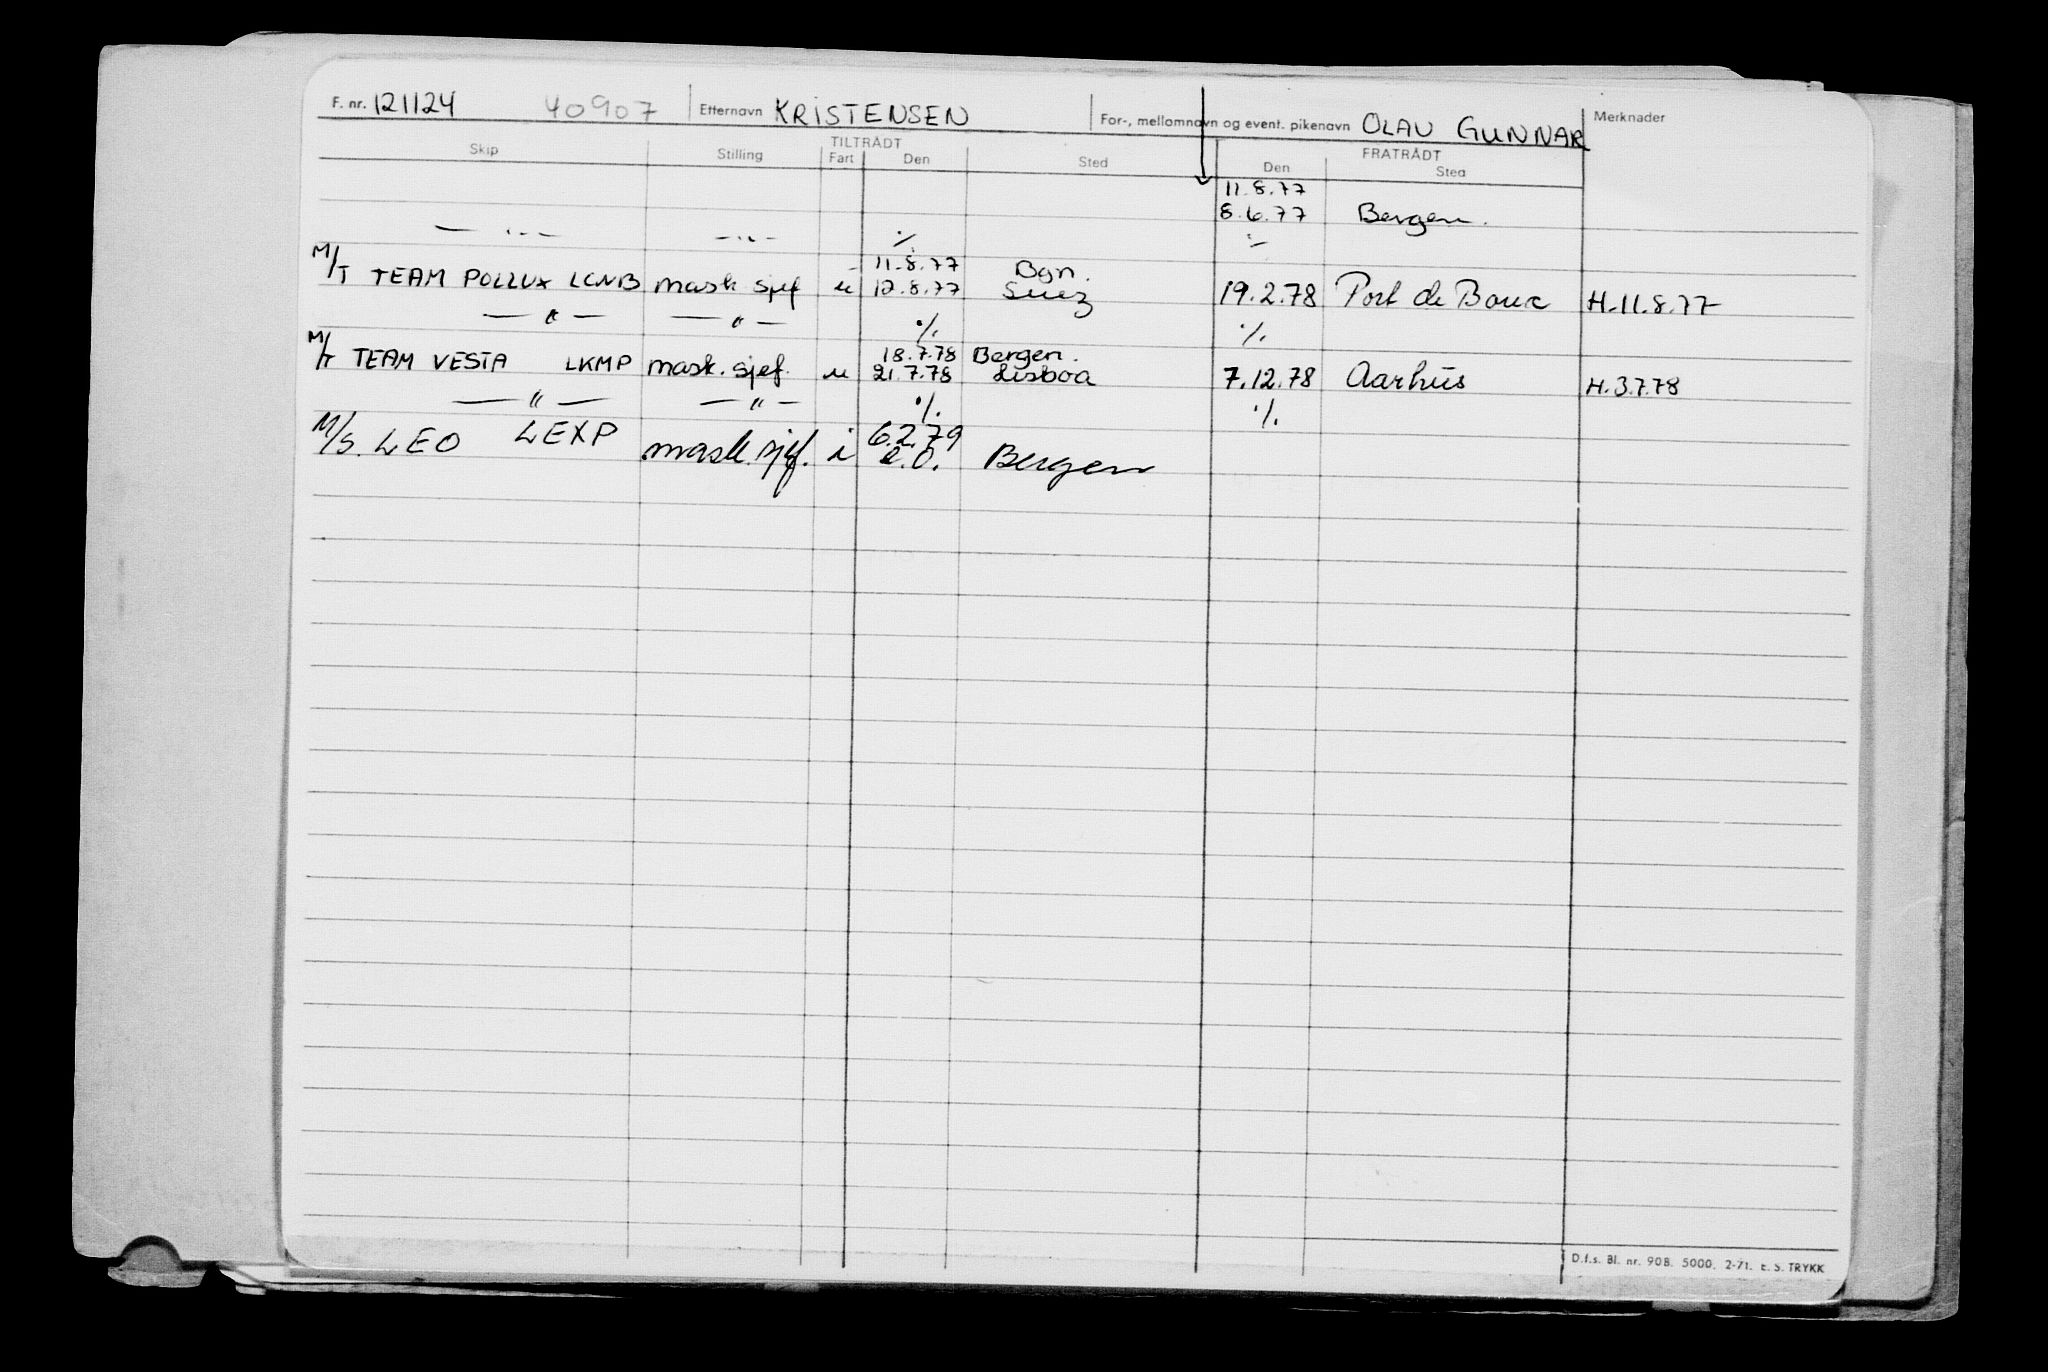 F. nr. 121124 40907 Etternavn KRISTENSEN For-, mellomnavn og event. pikenavn OLAV GUNNAR Merknader
TILTRÅDT FRATRÅDT
Skip Stilling Fart Den Sted Den Sted
11.8.77
8.6.77 Bergen.
— " — — " — ./. ./.
11.8.77 Bgn.
M/T TEAM POLLUX LCNB mask sjef u 12.8.77 Suez 19.2.78 Port de Bouc H.11.8.77
— " — — " — ./. ./.
18.7.78 Bergen.
M/T TEAM VESTA LKMP mask. sjef. u 21.7.78 Lisboa 7.12.78 Aarhus H.3.7.78
— " — — " — ./. ./.
6.2.79
M/S. LEO LEXP mask. sjef. i e.o. Bergen
D.f.s. Bl. nr. 908. 5000. 2-71. E. S. TRYKK